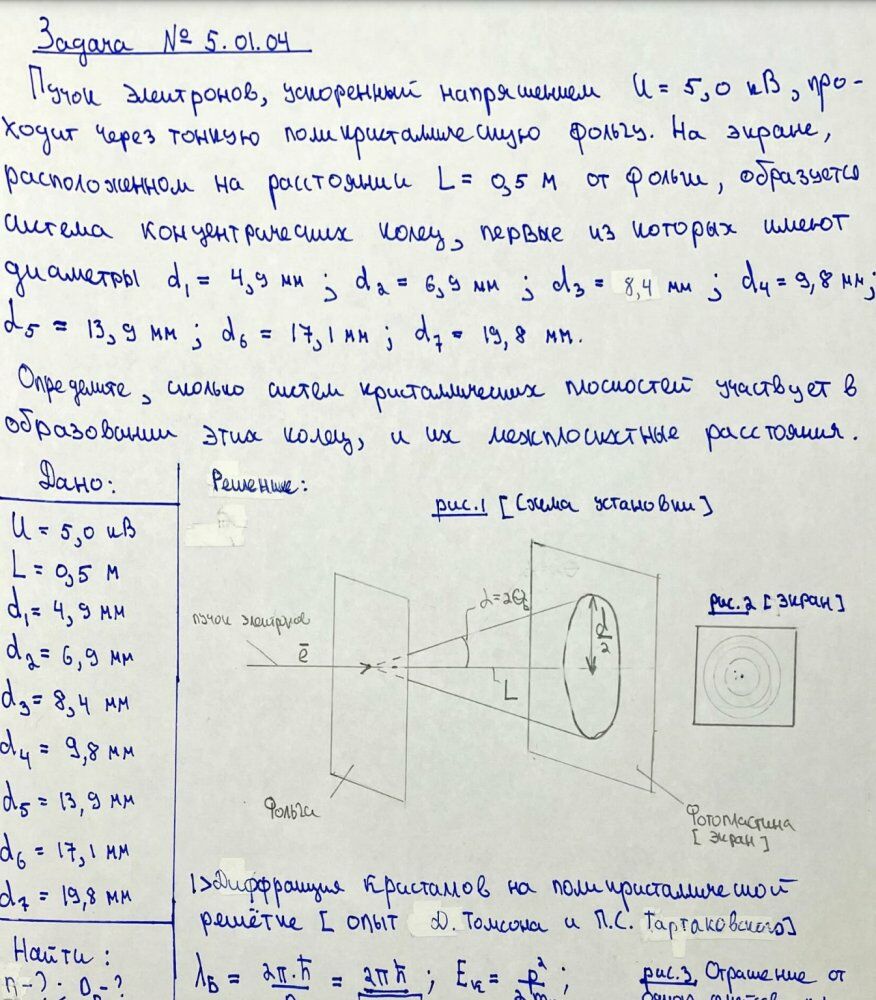 Задача № 5.01.04
Пучок электронов, ускоренный напряжением U = 5,0 кВ, про-
ходит через тонкую поликристаллическую фольгу. На экране,
расположенном на расстоянии L = 0,5 м от фольги, образуется
система концентрических колец, первые из которых имеют
диаметры d₁ = 4,9 мм ; d₂ = 6,9 мм ; d₃ = 8,4 мм ; d₄ = 9,8 мм;
d₅ = 13,9 мм ; d₆ = 17,1 мм ; d₇ = 19,8 мм.
Определите, сколько систем кристаллических плоскостей участвует в
образовании этих колец, и их межплоскостные расстояния.
Дано:
U = 5,0 кВ
L = 0,5 м
d₁ = 4,9 мм
d₂ = 6,9 мм
d₃ = 8,4 мм
d₄ = 9,8 мм
d₅ = 13,9 мм
d₆ = 17,1 мм
d₇ = 19,8 мм
Найти:
n-?
Решение:
рис.1 [Схема установки]
пучок электронов
ē
α=2θ
d/2
L
Фольга
Фотопластина
[экран]
рис.2 [экран]
1>Диффракция кристаллов на поликристаллической
решётке [опыт Д. Томсона и П.С. Тартаковского]
λ_Б = 2π·ħ = 2πħ ; Eₖ = p² ;
рис.3 Отражение от